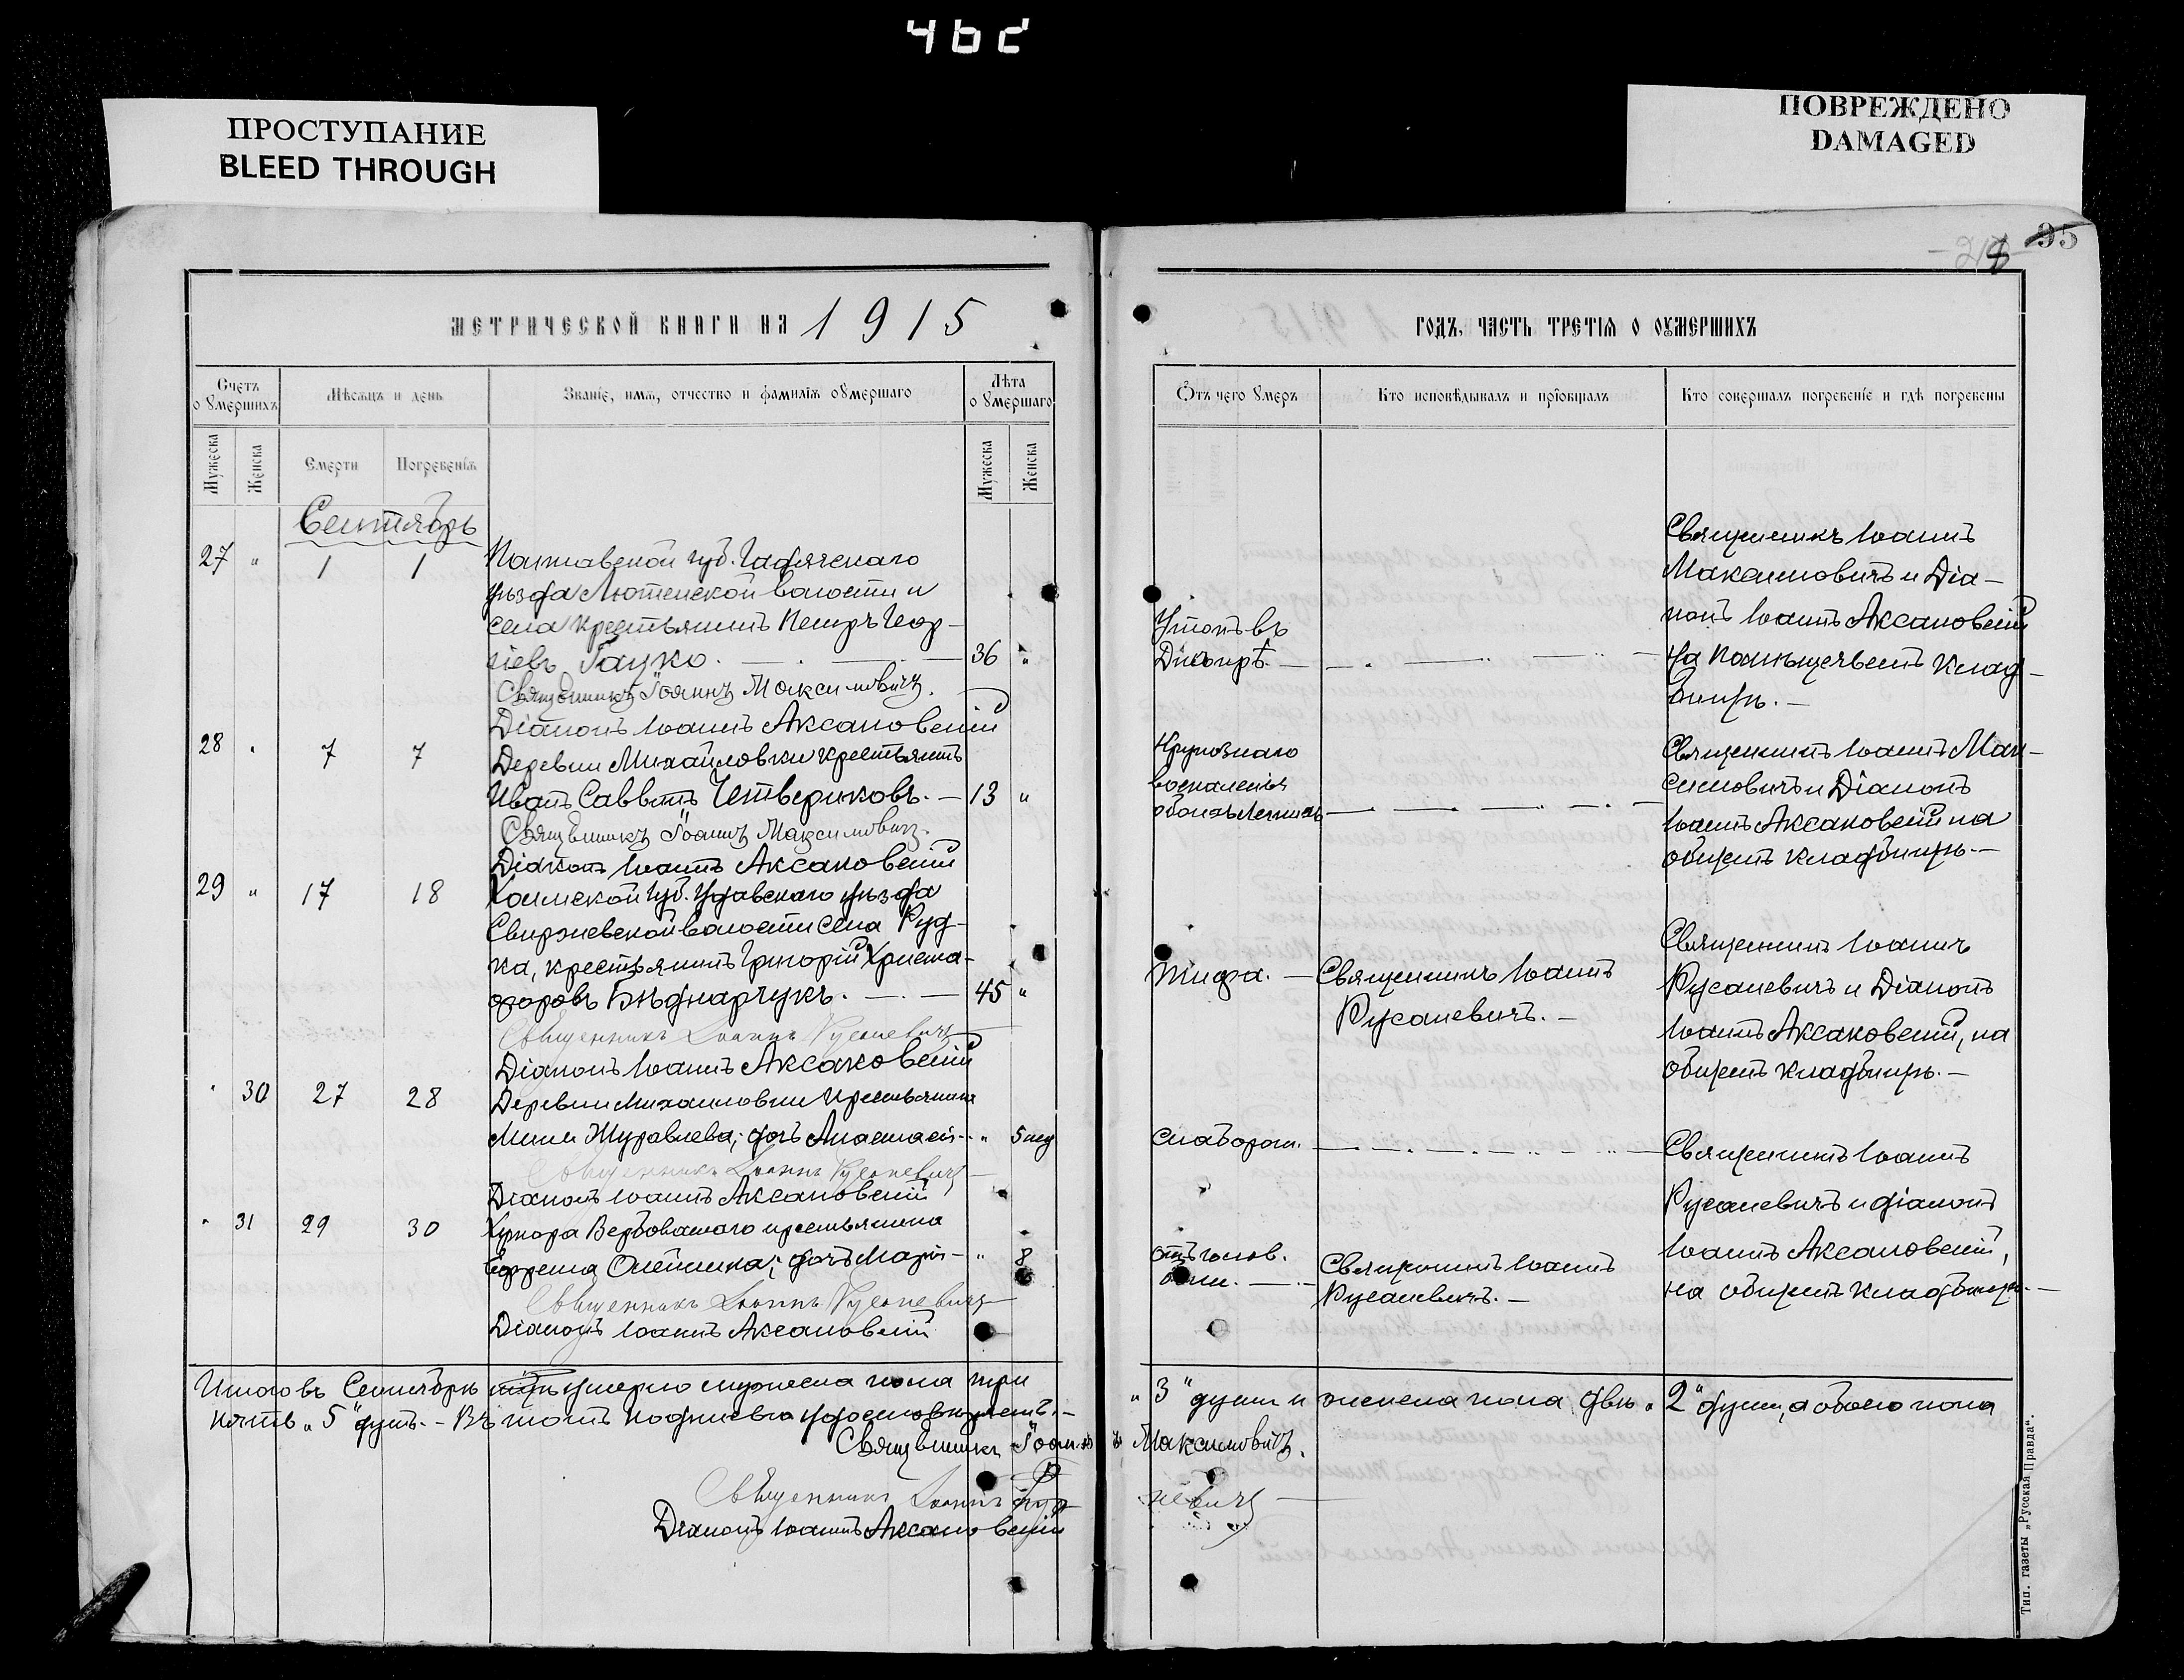 462
ПРОСТУПАНИЕ
BLEED THROUGH
ПОВРЕЖДЕНО
DAMAGED
95
МЕТРИЧЕСКОЙ КНИГИ НА 1915
Счетъ о умершихъ
Мѣсяцъ и день
Званіе, имя, отчество и фамилія умершаго
Лѣта о умершаго
Мужеска
Женска
Смерти
Погребенія
Мужеска
Женска
Сентябрь
27 " 1 1 Полтавской губ. Гадячскаго
уѣзда Лютенской волости и
села крестьянинъ Петръ Геор-
гіевъ Гауко. — 36 "
Священникъ Іоаннъ Максимовичъ.
Діаконъ Іоаннъ Аксаковскій
28 " 7 7 Деревни Михайловки крестьянинъ
Иванъ Саввинъ Четвериковъ. — 13 "
Священникъ Іоаннъ Максимовичъ.
Діаконъ Іоаннъ Аксаковскій
29 " 17 18 Холмской губ. уѣзда
Свиржевской волости села Руд-
ка, крестьянинъ Григорій Христо-
форовъ Бѣднарчукъ. — 45 "
Священникъ Іоаннъ Русаневичъ
Діаконъ Іоаннъ Аксаковскій
" 30 27 28 Деревни Михайловки крестьянина
Журавлева, дочь Анастасія - " 5 нед
Священникъ Іоаннъ Русаневичъ
Діаконъ Іоаннъ Аксаковскій
" 31 29 30 Хутора Вербоватаго крестьянина
Ефрема Олейника; дочь Марія - " 8
Священникъ Іоаннъ Русаневичъ
Діаконъ Іоаннъ Аксаковскій
Итого въ Сентябрѣ умерло мужеска пола три
пять "5" душъ. - Въ томъ подписью удостовѣряемъ. -
Священникъ Іоаннъ
Священникъ Іоаннъ Руса
Діаконъ Іоаннъ Аксаковскій
ГОДЪ, ЧАСТЬ ТРЕТІЯ О УМЕРШИХЪ
Отъ чего умеръ
Кто исповѣдывалъ и пріобщалъ
Кто совершалъ погребеніе и гдѣ погребены
Утонъ въ
Днѣпрѣ. —
Священникъ Іоаннъ
Максимовичъ и Діа-
конъ Іоаннъ Аксаковскій
на клад-
бищѣ. —
Крупознаго
воспаленія
обоихъ легкихъ
Священникъ Іоаннъ Мак-
симовичъ и Діаконъ
Іоаннъ Аксаковскій на
общемъ кладбищѣ. —
Тифа. —
Священникъ Іоаннъ
Русаневичъ. —
Священникъ Іоаннъ
Русаневичъ и Діаконъ
Іоаннъ Аксаковскій, на
общемъ кладбищѣ. —
Слаборожд.
Священникъ Іоаннъ
Русаневичъ и діаконъ
Іоаннъ Аксаковскій,
на общемъ кладбищѣ. —
отъ голов.
боли. —
Священникъ Іоаннъ
Русаневичъ. —
"3" души и женска пола двѣ "2" души, а обоего пола
Максимовичъ.
невичъ
Тип. газеты „Русская Правда“.